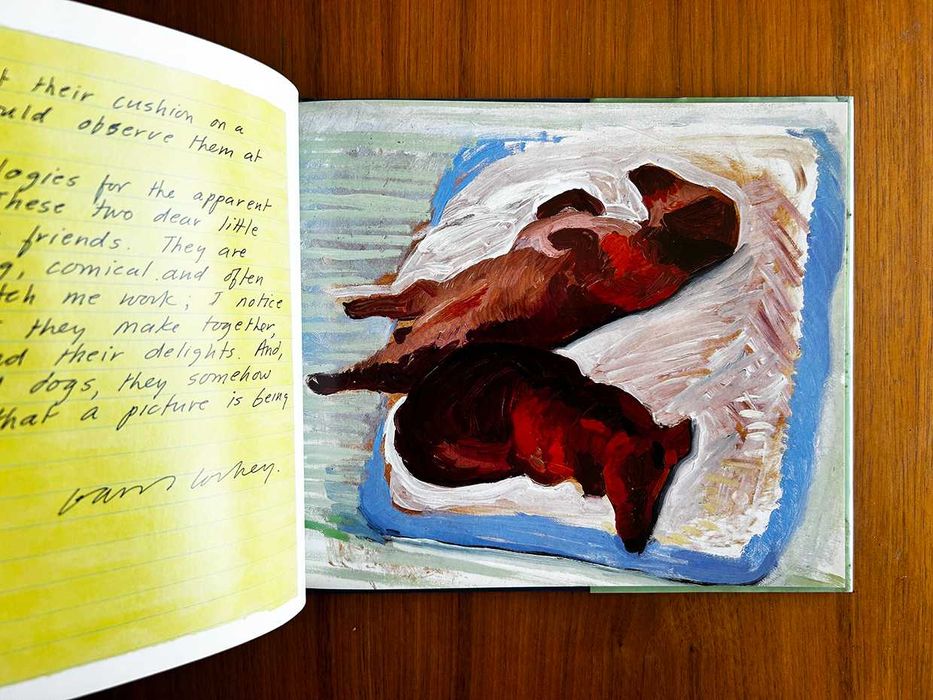 t their cushion on a
uld observe them at
logies for the apparent
These two dear little
friends. They are
g, comical and often
tch me work; I notice
they make together,
nd their delights. And,
dogs, they somehow
that a picture is being